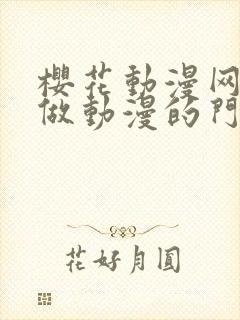 櫻花動漫网
做動漫的門
花好月圓